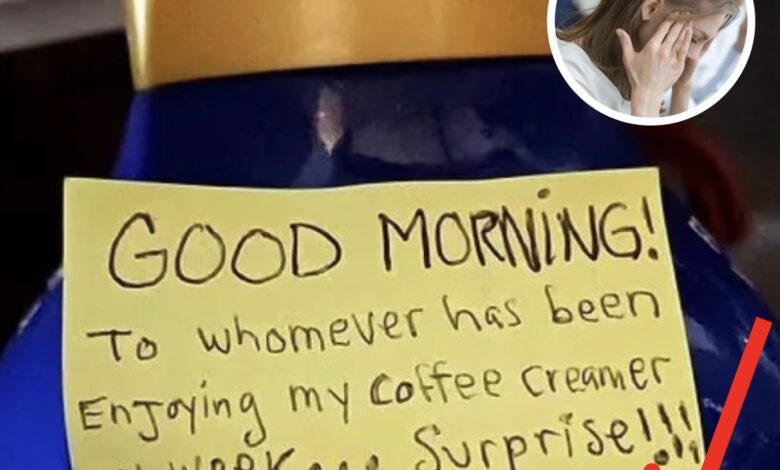 GOOD MORNING!
To whomever has been
Enjoying my coffee creamer
week ... Surprise!!!